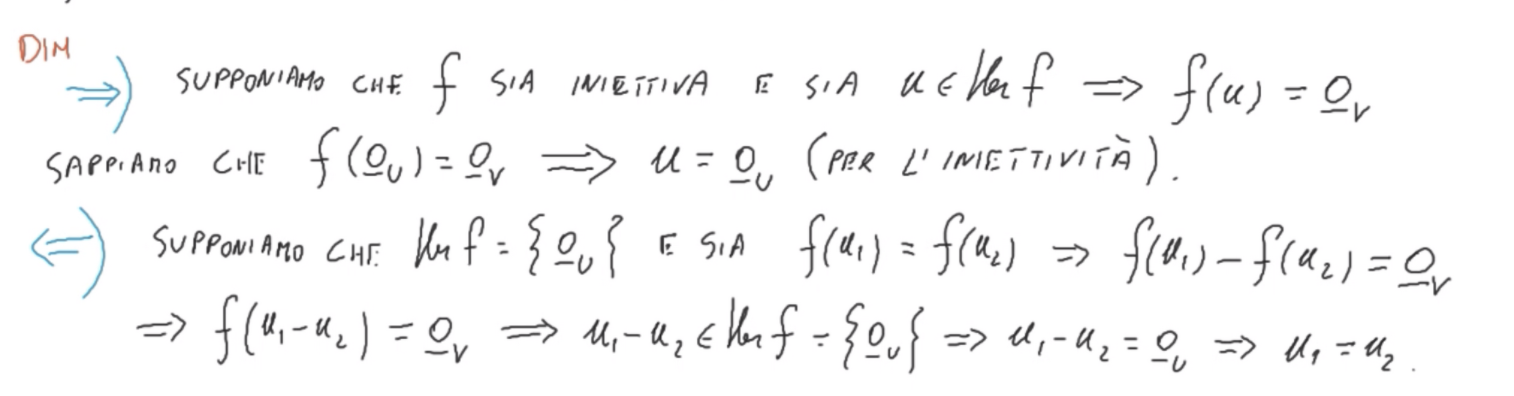 DIM
⇒) SUPPONIAMO CHE f SIA INIETTIVA E SIA u ∈ Ker f ⇒ f(u) = 0_V
SAPPIAMO CHE f(0_U) = 0_V ⇒ u = 0_U (PER L'INIETTIVITÀ).
⇐) SUPPONIAMO CHE Ker f = {0_U} E SIA f(u₁) = f(u₂) ⇒ f(u₁) - f(u₂) = 0_V
⇒ f(u₁-u₂) = 0_V ⇒ u₁-u₂ ∈ Ker f = {0_U} ⇒ u₁-u₂ = 0_U ⇒ u₁ = u₂.